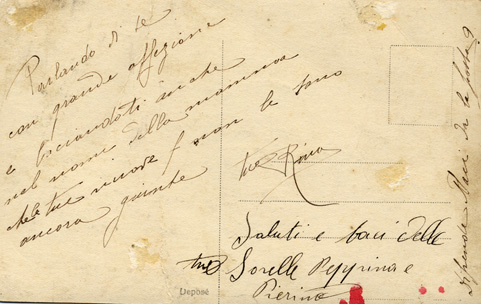 Parlando di te
con grande affezione
e baciandoti anche
nel nome della mamma
che le tue nuove non le sono
ancora giunte
tua Rina
Saluti e baci delle
tue Sorelle Peppina e
Pierina
Deposé